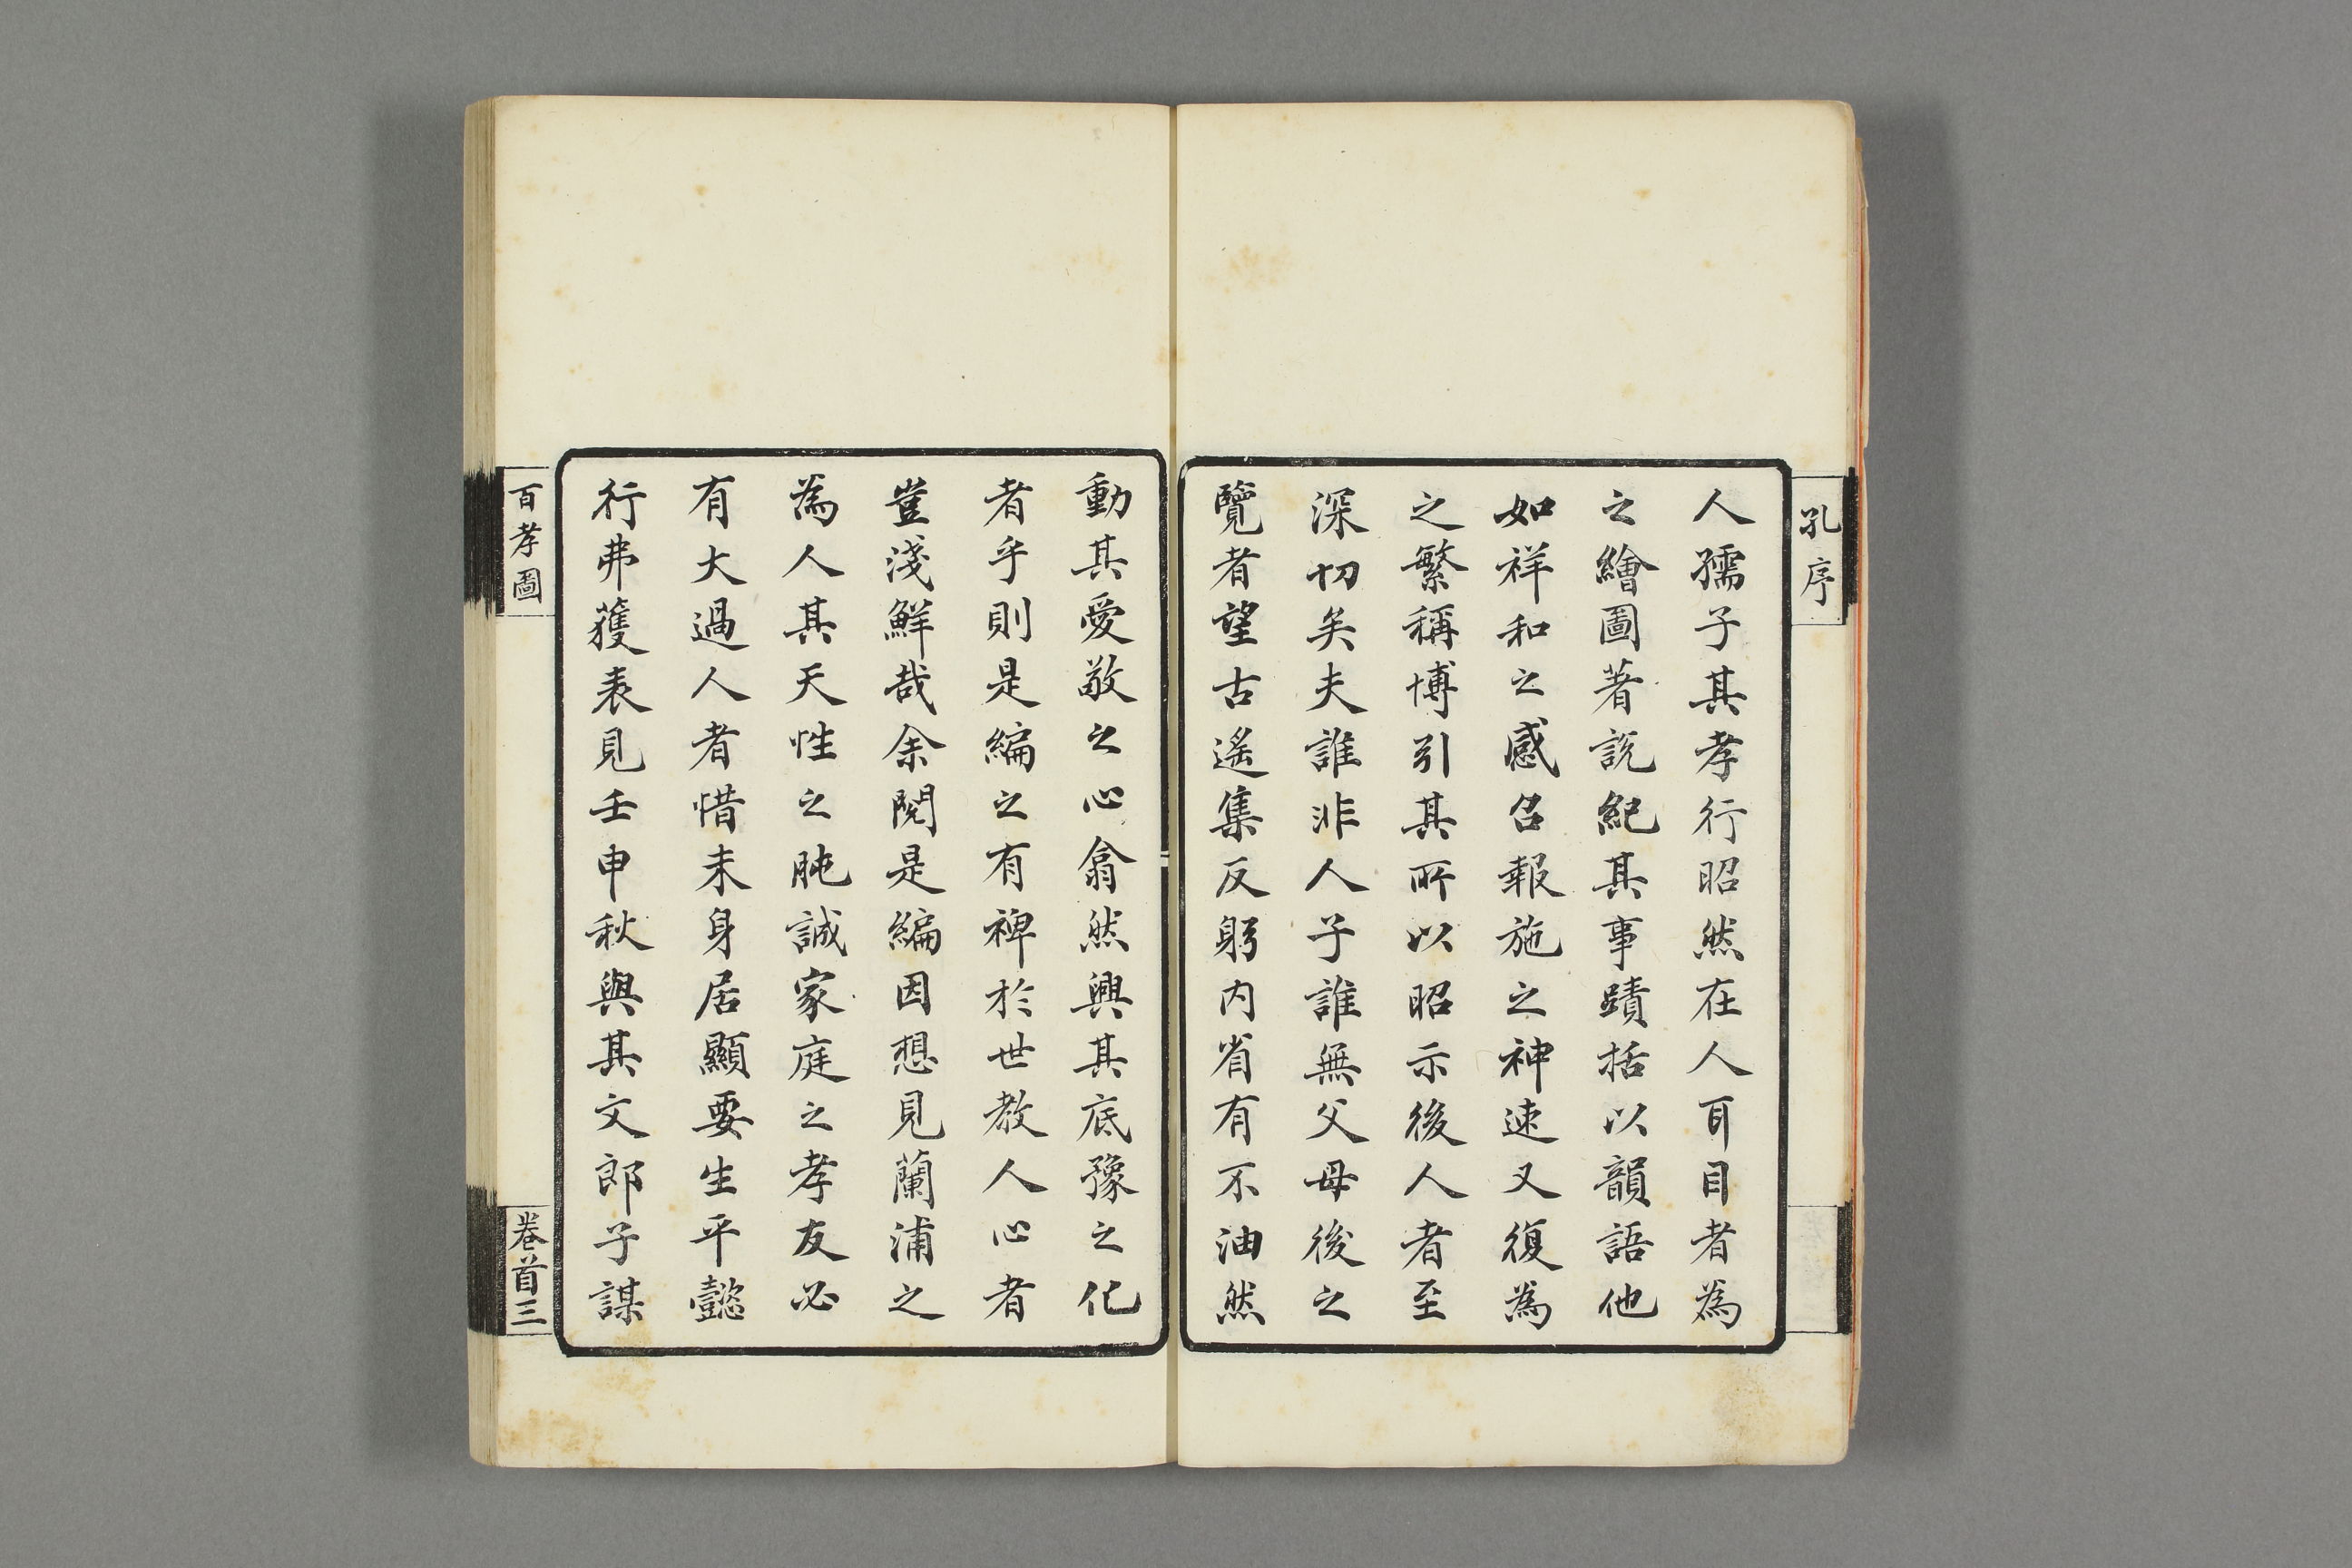 孔序
人孺子其孝行昭然在人耳目者為
之繪圖著說紀其事蹟括以韻語他
如祥和之感召報施之神速又復為
之繁稱博引其所以昭示後人者至
深切矣夫誰非人子誰無父母後之
覽者望古遙集反躬內省有不油然
動其愛敬之心翕然興其底豫之化
者乎則是編之有裨於世教人心者
豈淺鮮哉余閱是編因想見蘭浦之
為人其天性之肫誠家庭之孝友必
有大過人者惜未身居顯要生平懿
行弗獲表見壬申秋與其文郎子謀
百孝圖
卷首三